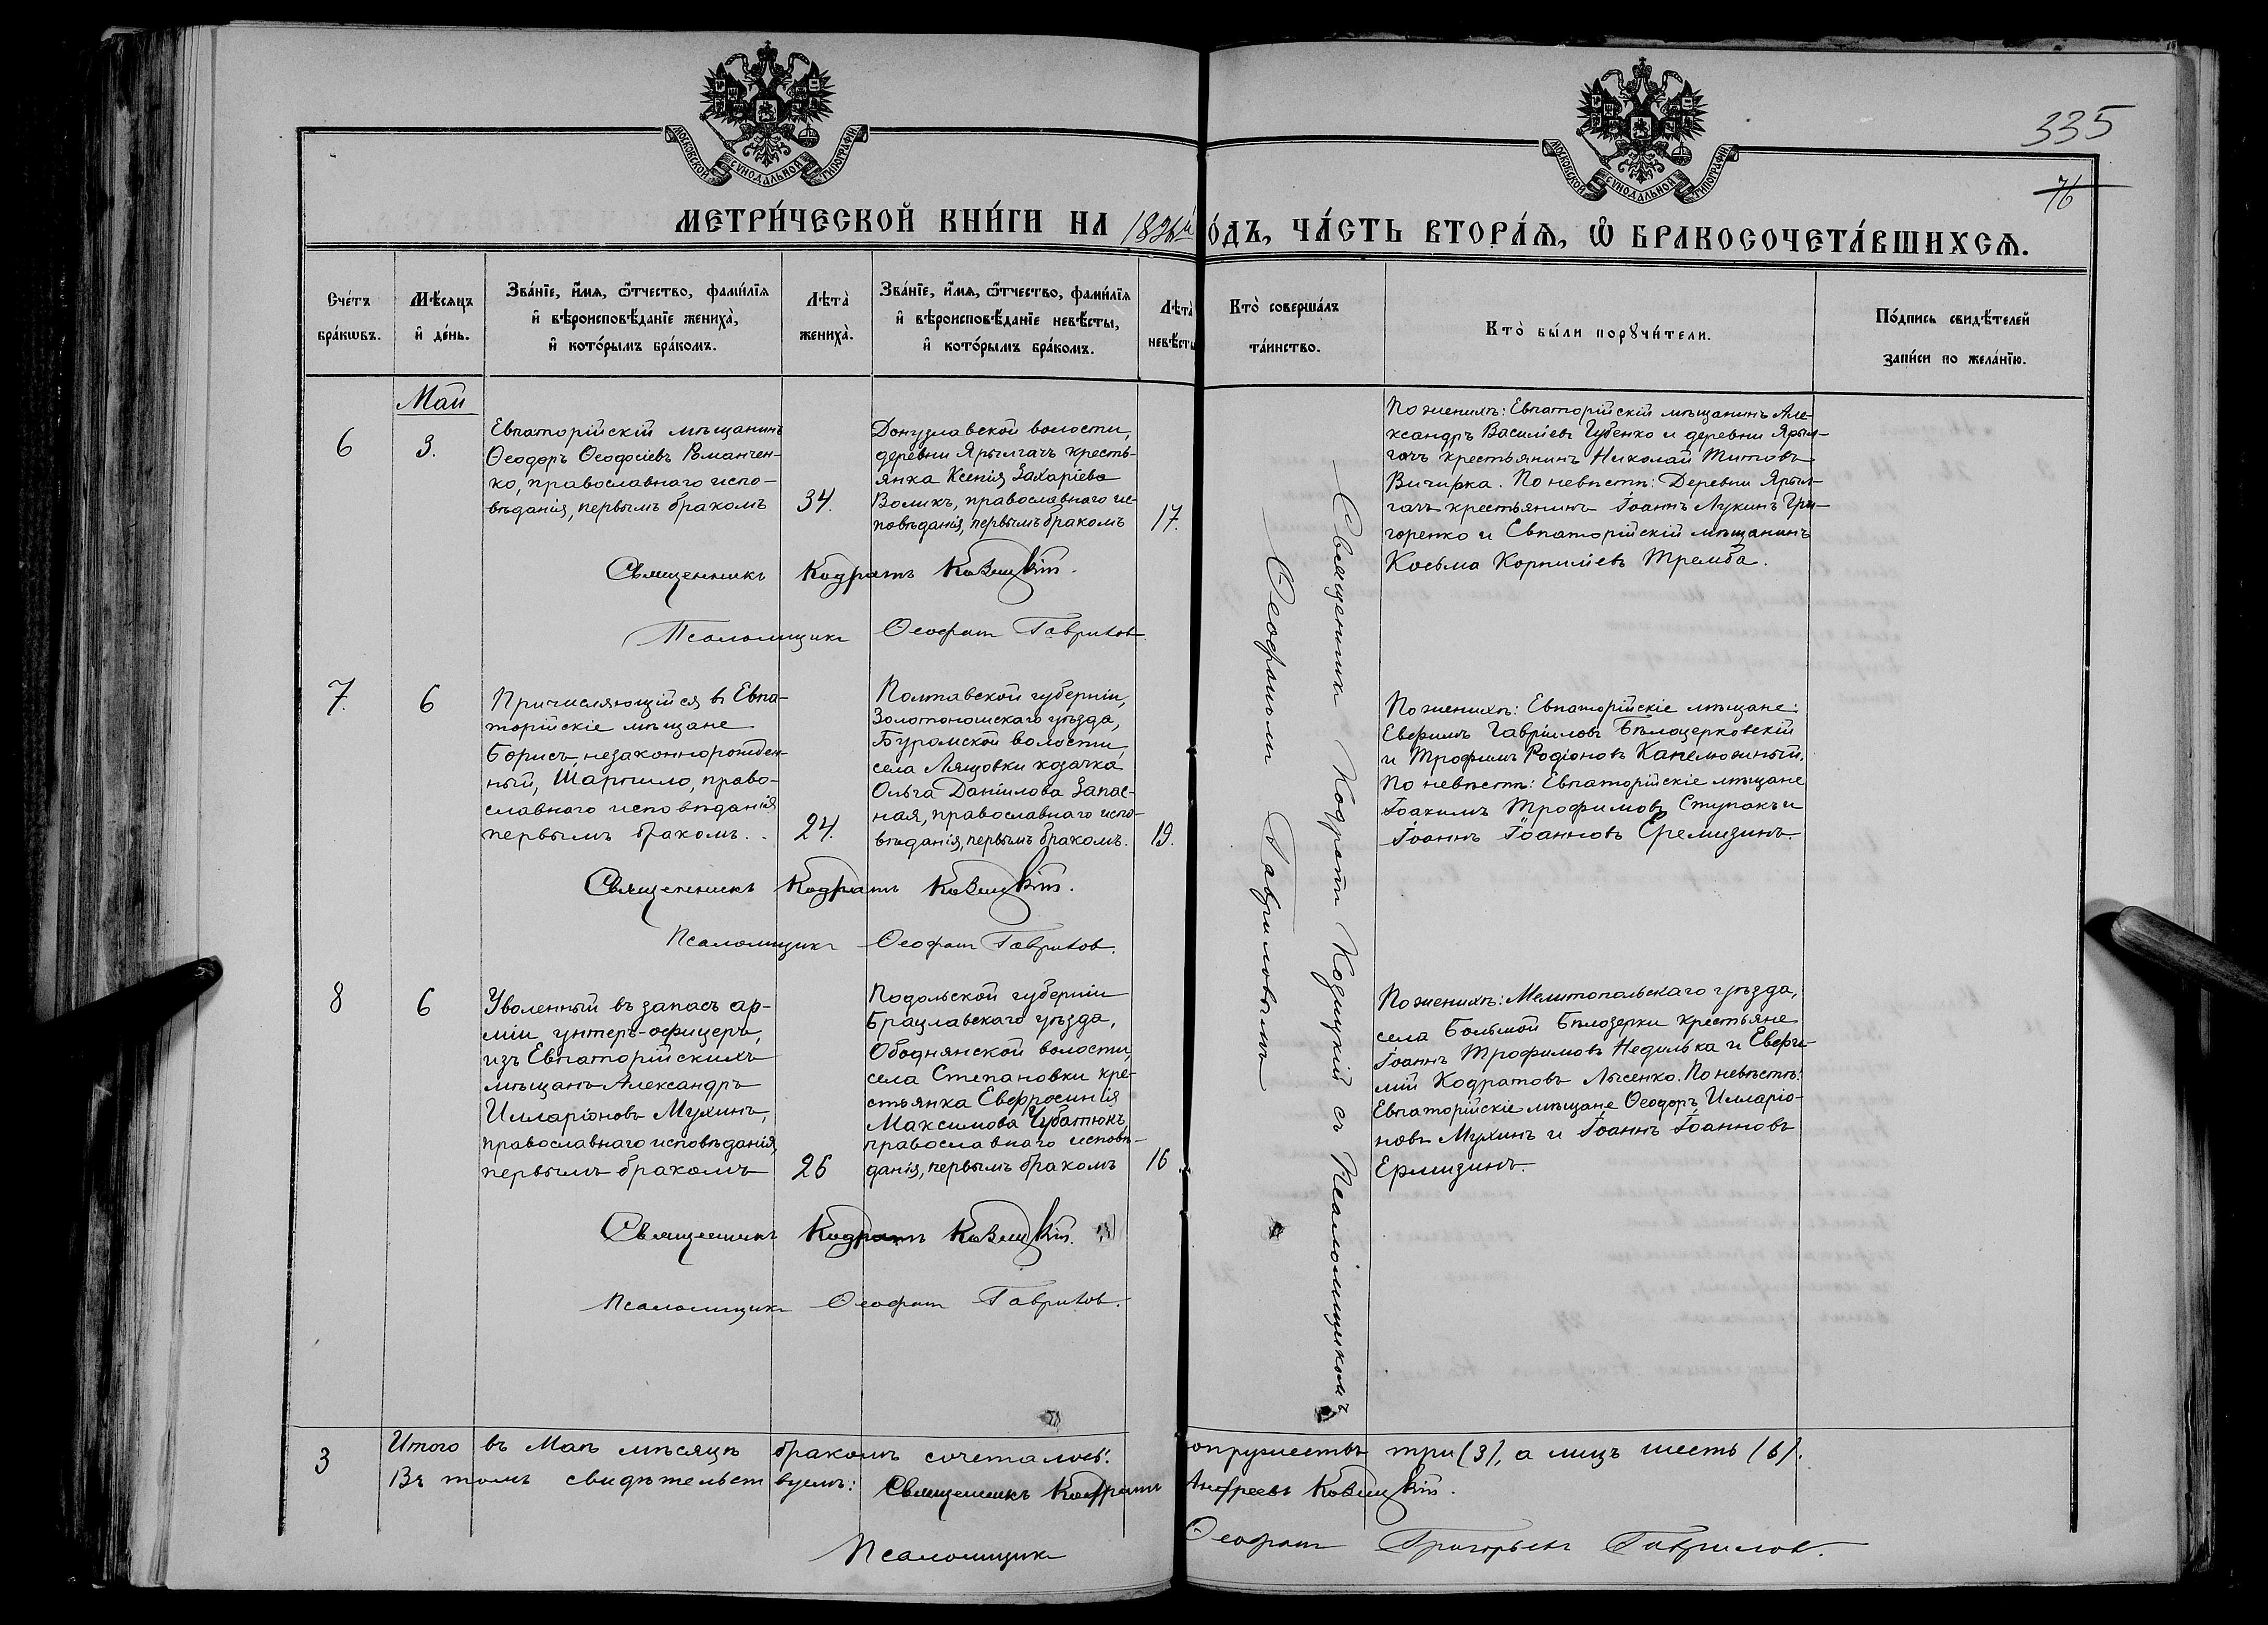 335
76
МОСКОВСКОЙ СѴНОДАЛЬНОЙ ТИПОГРАФІИ
МОСКОВСКОЙ СѴНОДАЛЬНОЙ ТИПОГРАФІИ
МЕТРИ́ЧЕСКОЙ КНИ́ГИ НА 1896й ГО́ДЪ, ЧА́СТЬ ВТОРА́Ѧ, Ѽ БРАКОСОЧЕТА́ВШИХСѦ.
Сче́тъ
бра́кωвъ.
Мѣ́сѧцъ
и҆ де́нь.
Зва́нїе, и҆́мѧ, ѻ҆́тчество, фами́лїѧ
и҆ вѣроисповѣ́данїе жениха̀,
и҆ кото́рымъ бра́комъ.
Лѣта̀
жениха̀.
Зва́нїе, и҆́мѧ, ѻ҆́тчество, фами́лїѧ
и҆ вѣроисповѣ́данїе невѣ́сты,
и҆ кото́рымъ бра́комъ.
Лѣта̀
невѣ́сты
Кто̀ соверша́лъ
та́инство.
Кто̀ бы́ли порꙋчи́тели.
По́дпись свидѣ́телей
за́писи по жела́нїю.
Май
6
3.
Евпаторійскій мѣщанинъ
Ѳеодоръ Ѳеодосіевъ Романчен-
ко, православнаго испо-
вѣданія, первымъ бракомъ
34.
Донузлавской волости,
деревни Ярылгачъ кресть-
янка Ксенія Захаріева
Воликъ, православнаго ис-
повѣданія, первымъ бракомъ
17.
Священникъ Кодратъ Козицкій.
Псаломщикъ Ѳеофанъ Гавриловъ.
По женихѣ: Евпаторійскій мѣщанинъ Але-
ксандръ Василіевъ Губенко и деревни Ярыл-
гачъ крестьянинъ Николай Титовъ
Вичирка. По невѣстѣ: Деревни Ярыл-
гачъ крестьянинъ Іоаннъ Лукинъ Гри-
горенко и Евпаторійскій мѣщанинъ
Косьма Корниліевъ Тремба.
Священникъ Кодратъ Козицкій съ Псаломщикомъ
Ѳеофаномъ Гавриловымъ
7.
6
Причисляющійся въ Евпа-
торійскіе мѣщане
Борисъ, незаконнорожден-
ный, Шарпило, право-
славнаго исповѣданія
первымъ бракомъ.
24.
Полтавской губерніи,
Золотоношскаго уѣзда,
Буромской волости,
села Лящовки козачка
Ольга Даніилова Запас-
ная, православнаго испо-
вѣданія, первымъ бракомъ.
19.
Священникъ Кодратъ Козицкій.
Псаломщикъ Ѳеофанъ Гавриловъ.
По женихѣ: Евпаторійскіе мѣщане:
Евфимъ Гавріиловъ Бѣлоцерковскій
и Трофимъ Родіоновъ Капелюшный.
По невѣстѣ: Евпаторійскіе мѣщане
Іоакимъ Трофимовъ Ступакъ и
Іоаннъ Іоанновъ Еремизинъ.
8
6
Уволенный въ запасъ ар-
міи унтеръ-офицеръ,
изъ Евпаторійскихъ
мѣщанъ Александръ
Илларіоновъ Мухинъ,
православнаго исповѣданія,
первымъ бракомъ
26
Подольской губерніи
Брацлавскаго уѣзда,
Ободнянской волости,
села Степановки кре-
стьянка Евфросинія
Максимова Чубатюкъ,
православнаго исповѣ-
данія, первымъ бракомъ
16
Священникъ Кодратъ Козицкій.
Псаломщикъ Ѳеофанъ Гавриловъ.
По женихѣ: Мелитопольскаго уѣзда,
села Большой Бѣлозерки крестьяне
Іоаннъ Трофимовъ Недилька и Евфи-
мій Кодратовъ Лысенко. По невѣстѣ:
Евпаторійскіе мѣщане Ѳеодоръ Илларіо-
новъ Мухинъ и Іоаннъ Іоанновъ
Ермизинъ.
3
Итого въ Маѣ мѣсяцѣ бракомъ сочеталось: супружествъ три (3), а лицъ шесть (6).
Въ томъ свидѣтельствуемъ: Священникъ Кодратъ Андреевъ Козицкій.
Псаломщикъ Ѳеофанъ Григорьевъ Гавриловъ.